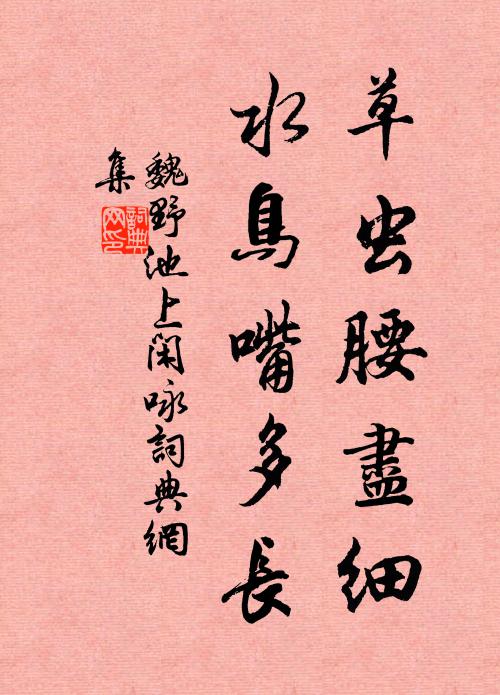 草虫腰盡細
水鳥嘴多長
魏野池上閑咏詞典網
集
詞典
网印